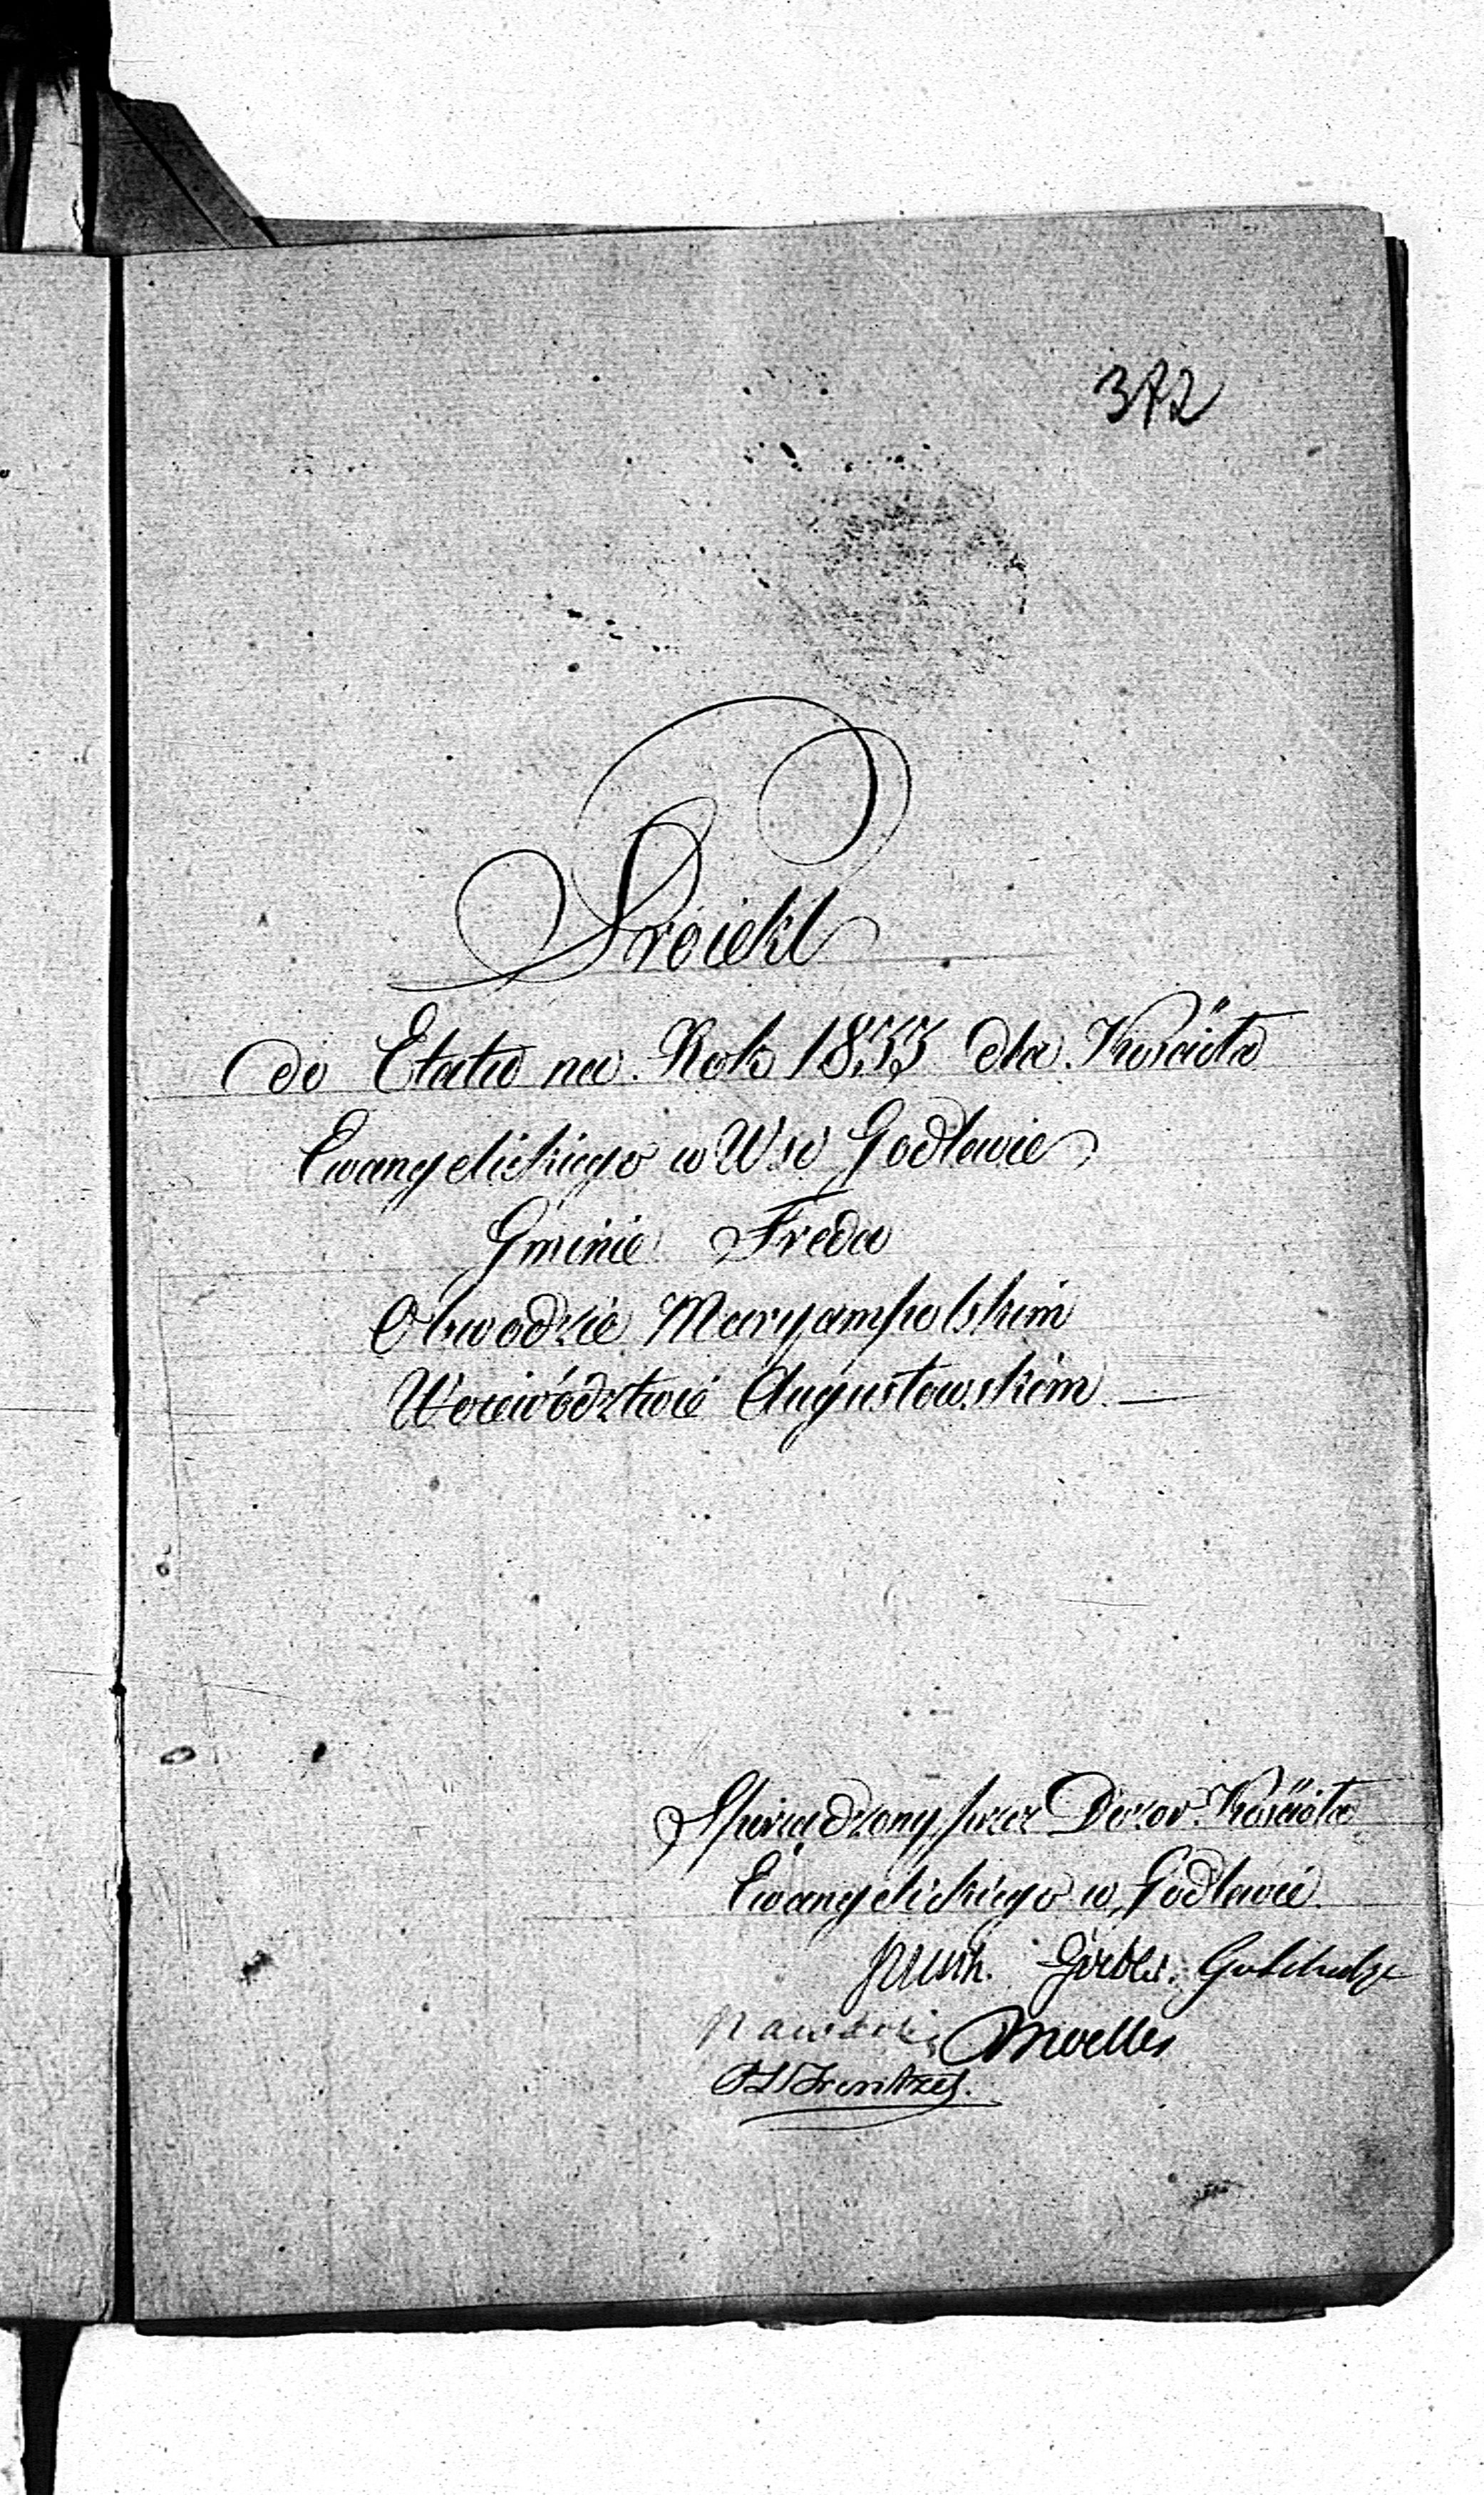 372
Proiekt
do Etatu na Rok 1833 dla Kościoła
Ewangelickiego w Wsi Godlewie
Gminie Freda
Obwodzie Maryampolskim
Woiewództwie Augustowskim
Sporządzony przez Dozor Kościoła
Ewangelickiego w Godlewie
Moeller